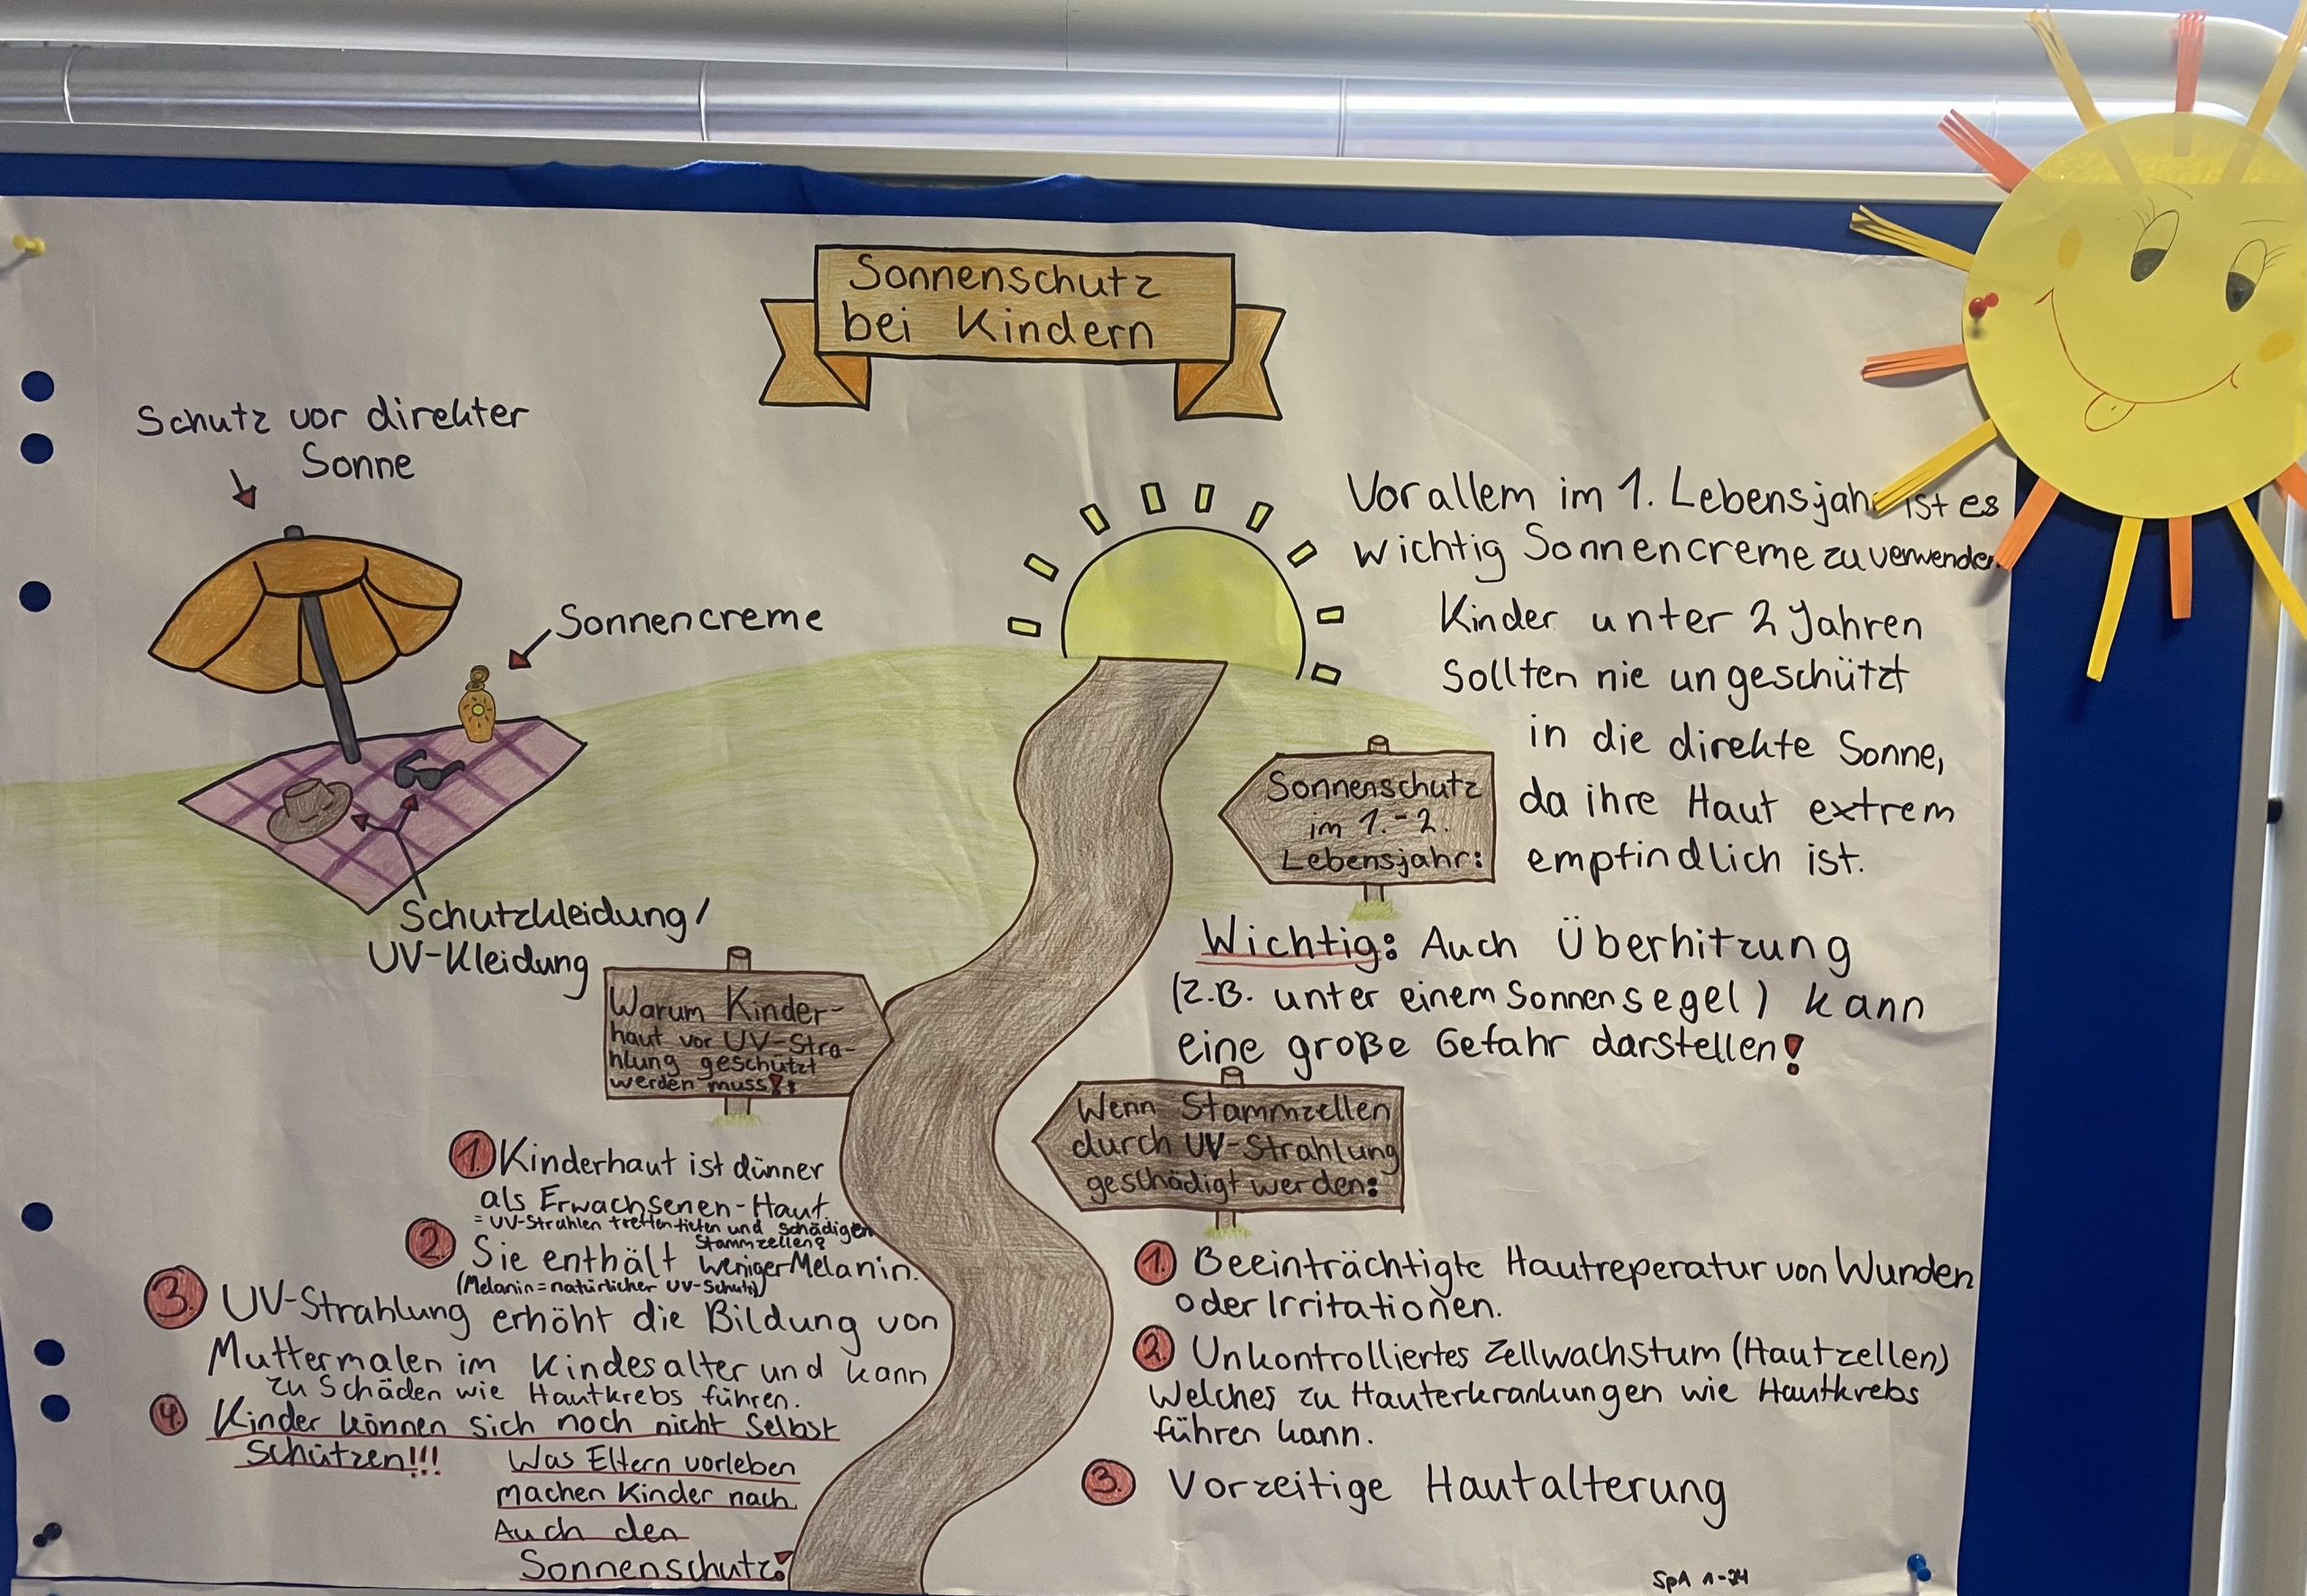 Sonnenschutz
bei Kindern
Schutz vor direkter
Sonne
Sonnencreme
Schutzkleidung/
UV-Kleidung
Vor allem im 1. Lebensjahr ist es
wichtig Sonnencreme zu verwenden
Kinder unter 2 Jahren
Sollten nie ungeschützt
in die direkte Sonne,
da ihre Haut extrem
empfindlich ist.
Sonnenschutz
im 1.-2.
Lebensjahr:
Wichtig: Auch Überhitzung
(z.B. unter einem Sonnensegel) kann
eine große Gefahr darstellen!
Warum Kinder-
haut vor UV-Stra-
hlung geschützt
werden muss!:
1. Kinderhaut ist dünner
als Erwachsenen-Haut.
= UV-Strahlen treffen tiefen und schädigen
Stammzellen
2. Sie enthält weniger Melanin.
(Melanin = natürlicher UV-Schutz)
3. UV-Strahlung erhöht die Bildung von
Muttermalen im Kindesalter und kann
zu Schäden wie Hautkrebs führen.
4. Kinder können sich noch nicht Selbst
Schützen!!!
Was Eltern vorleben
machen Kinder nach
Auch den
Sonnenschutz!
Wenn Stammzellen
durch UV-Strahlung
geschädigt werden:
1. Beeinträchtigte Hautreperatur von Wunden
oder Irritationen.
2. Unkontrolliertes Zellwachstum (Hautzellen)
Welches zu Hauterkrankungen wie Hautkrebs
führen kann.
3. Vorzeitige Hautalterung
SpA 1-24